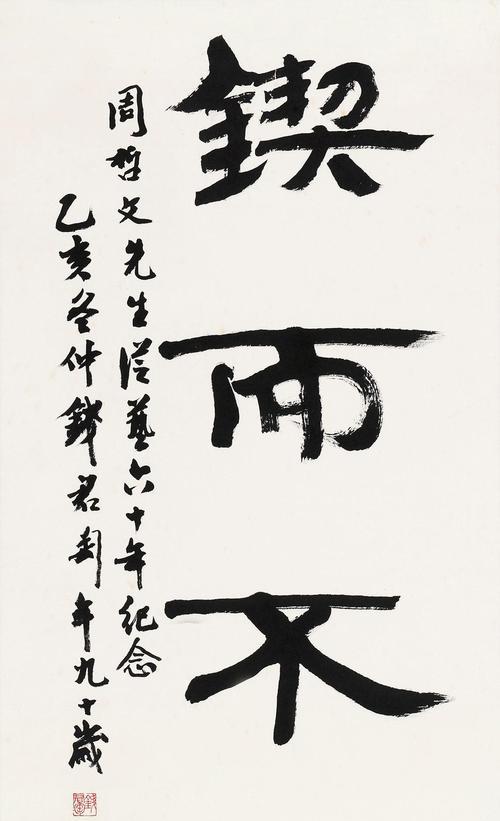 鍥而不
周哲文先生從藝六十年紀念
乙亥冬仲錢君匋年九十歲